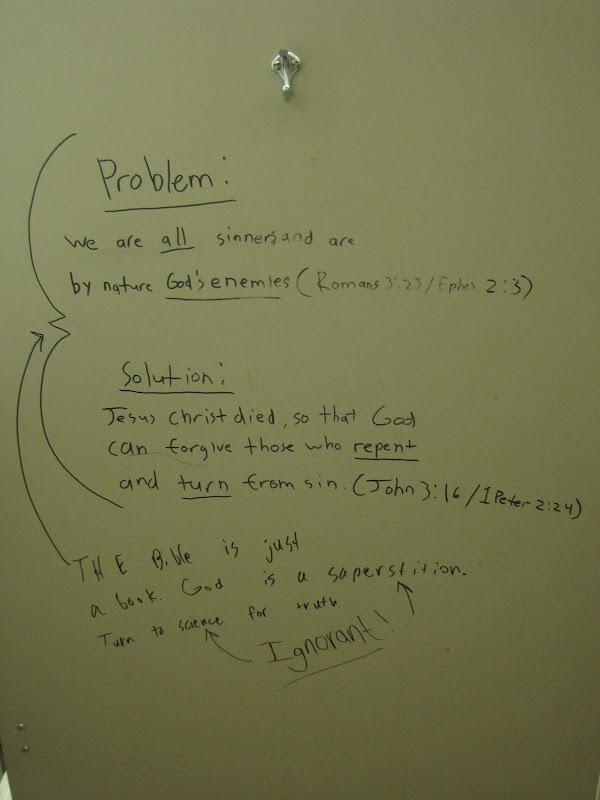 Problem:
we are all sinners and are
by nature God's enemies (Romans 3:23/Ephes. 2:3)
Solution:
Jesus christ died, so that God
can forgive those who repent
and turn from sin. (John 3:16/1 Peter 2:24)
THE Bible is just
a book. God is a superstition.
Turn to science for truth.
Ignorant!